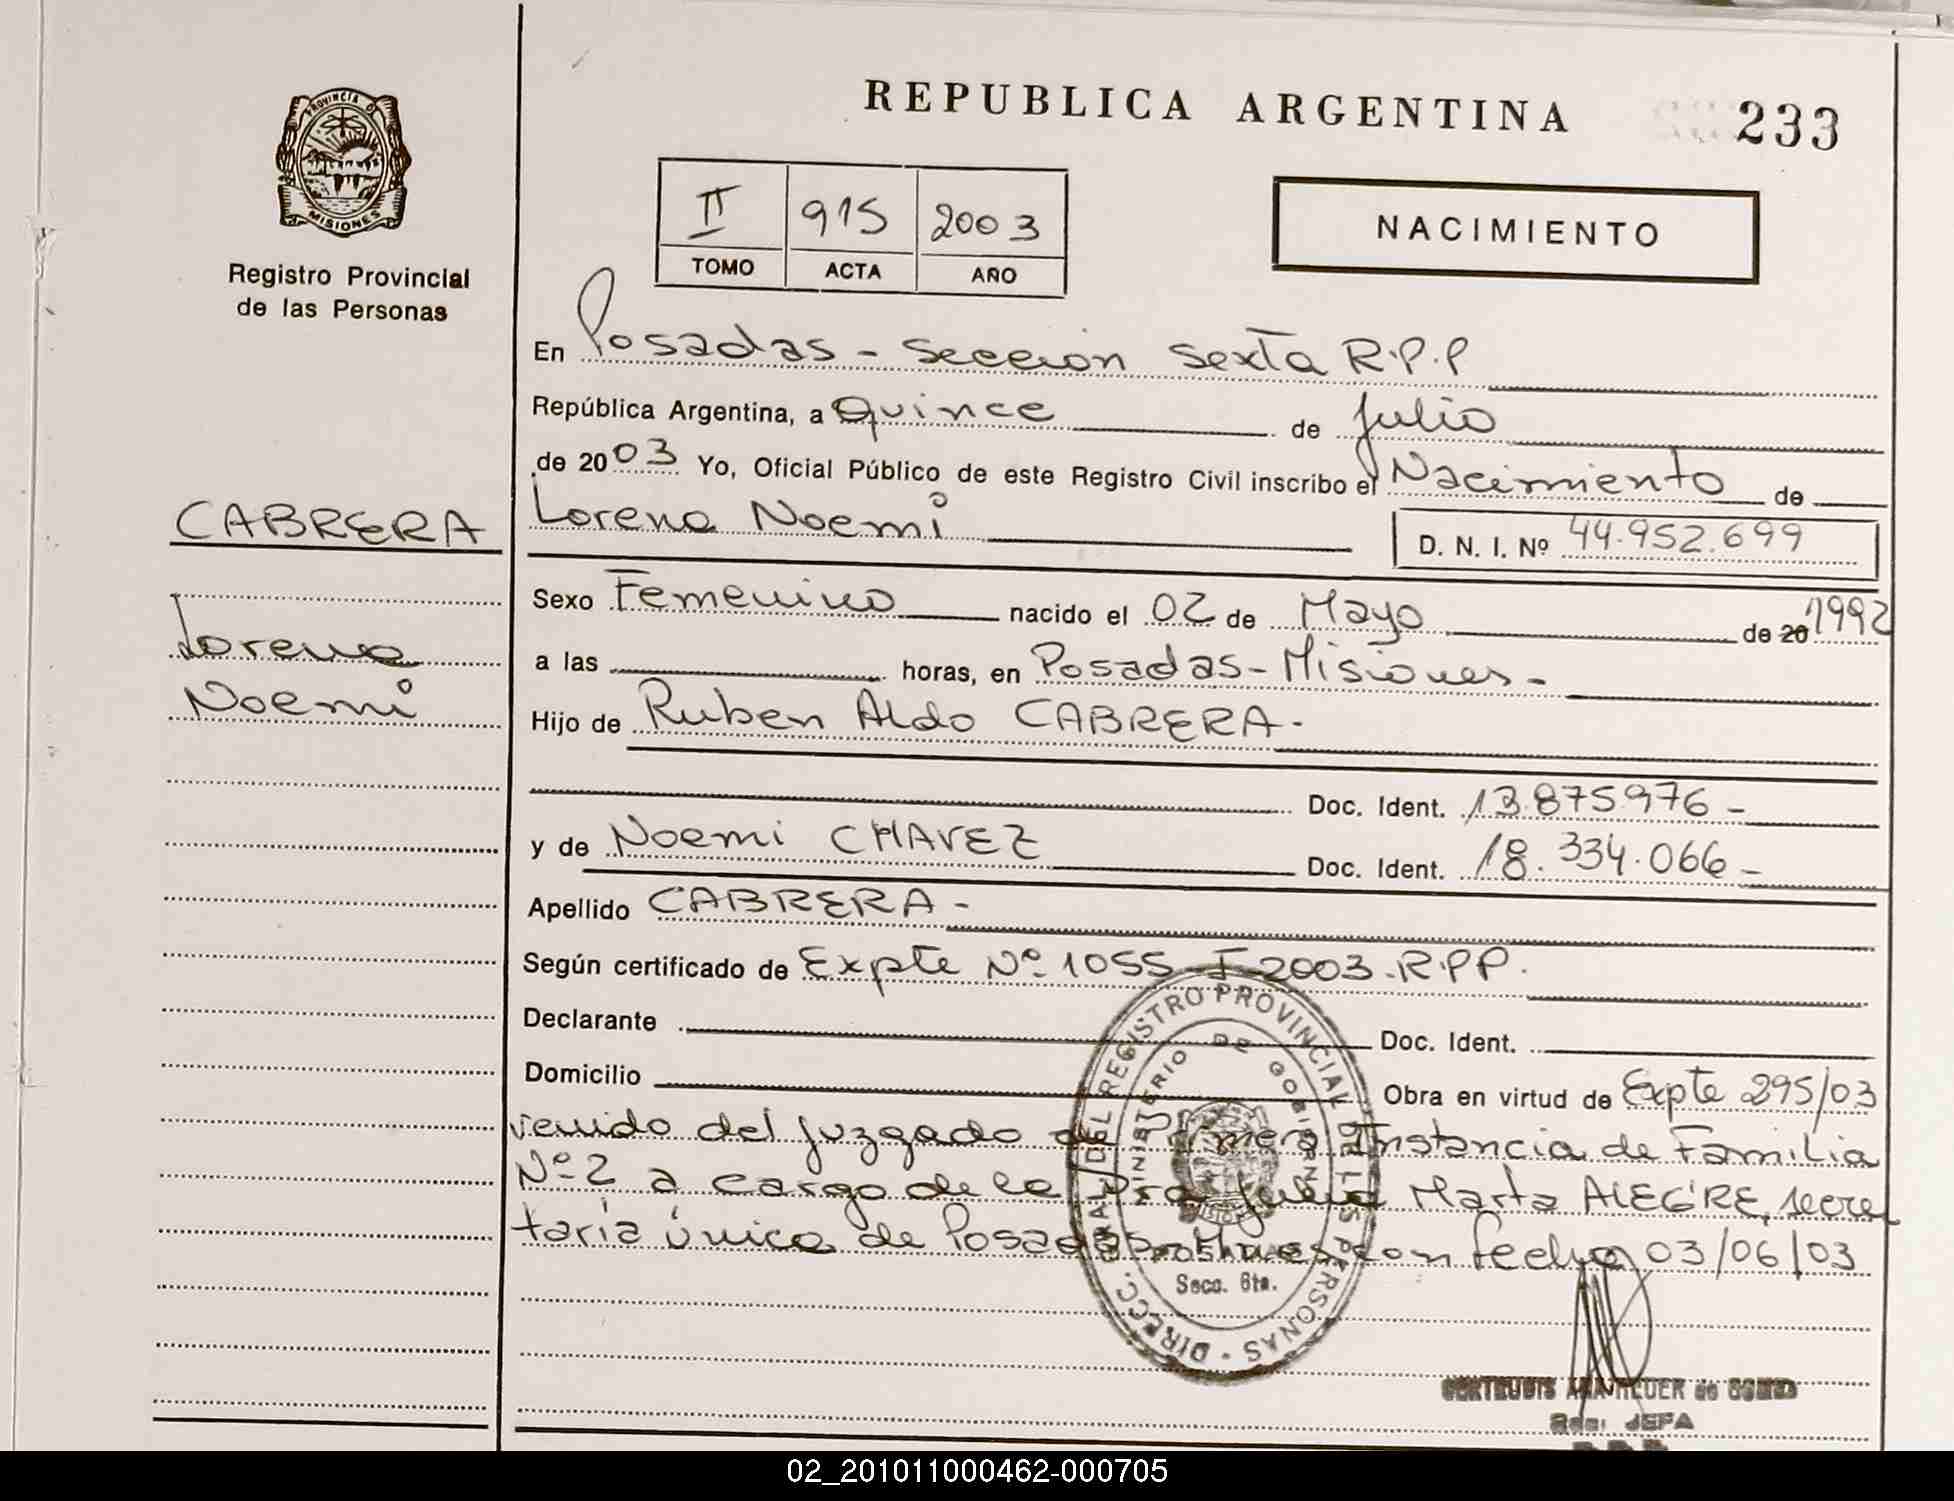 REPUBLICA ARGENTINA
233
PROVINCIA DE
MISIONES
Registro Provincial
de las Personas
II 915 2003
TOMO ACTA AÑO
NACIMIENTO
En Posadas - Seccion Sexta R.P.P
República Argentina, a Quince de Julio
de 2003 Yo, Oficial Público de este Registro Civil inscribo el Nacimiento de
CABRERA
Lorena Noemi
D. N. I. Nº 44.952.699
Sexo Femenino nacido el 02 de Mayo de 20 1992
Lorena
Noemi
a las horas, en Posadas - Misiones -
Hijo de Ruben Aldo CABRERA -
Doc. Ident. 13.875.976 -
y de Noemi CHAVEZ Doc. Ident. 18.334.066 -
Apellido CABRERA -
Según certificado de Expte Nº 1055 - I - 2003 - R.P.P.
Declarante Doc. Ident.
Domicilio Obra en virtud de Expte 295/03
venido del Juzgado de Primera Instancia de Familia
Nº 2 a cargo de la Dra Julia Marta ALEGRE, secre
taría única de Posadas - Mnes con fecha 03/06/03
DIRECC. GRAL. DEL REGISTRO PROVINCIAL DE LAS PERSONAS
MINISTERIO DE GOBIERNO
Secc. 6ta.
JEFA
02_201011000462-000705